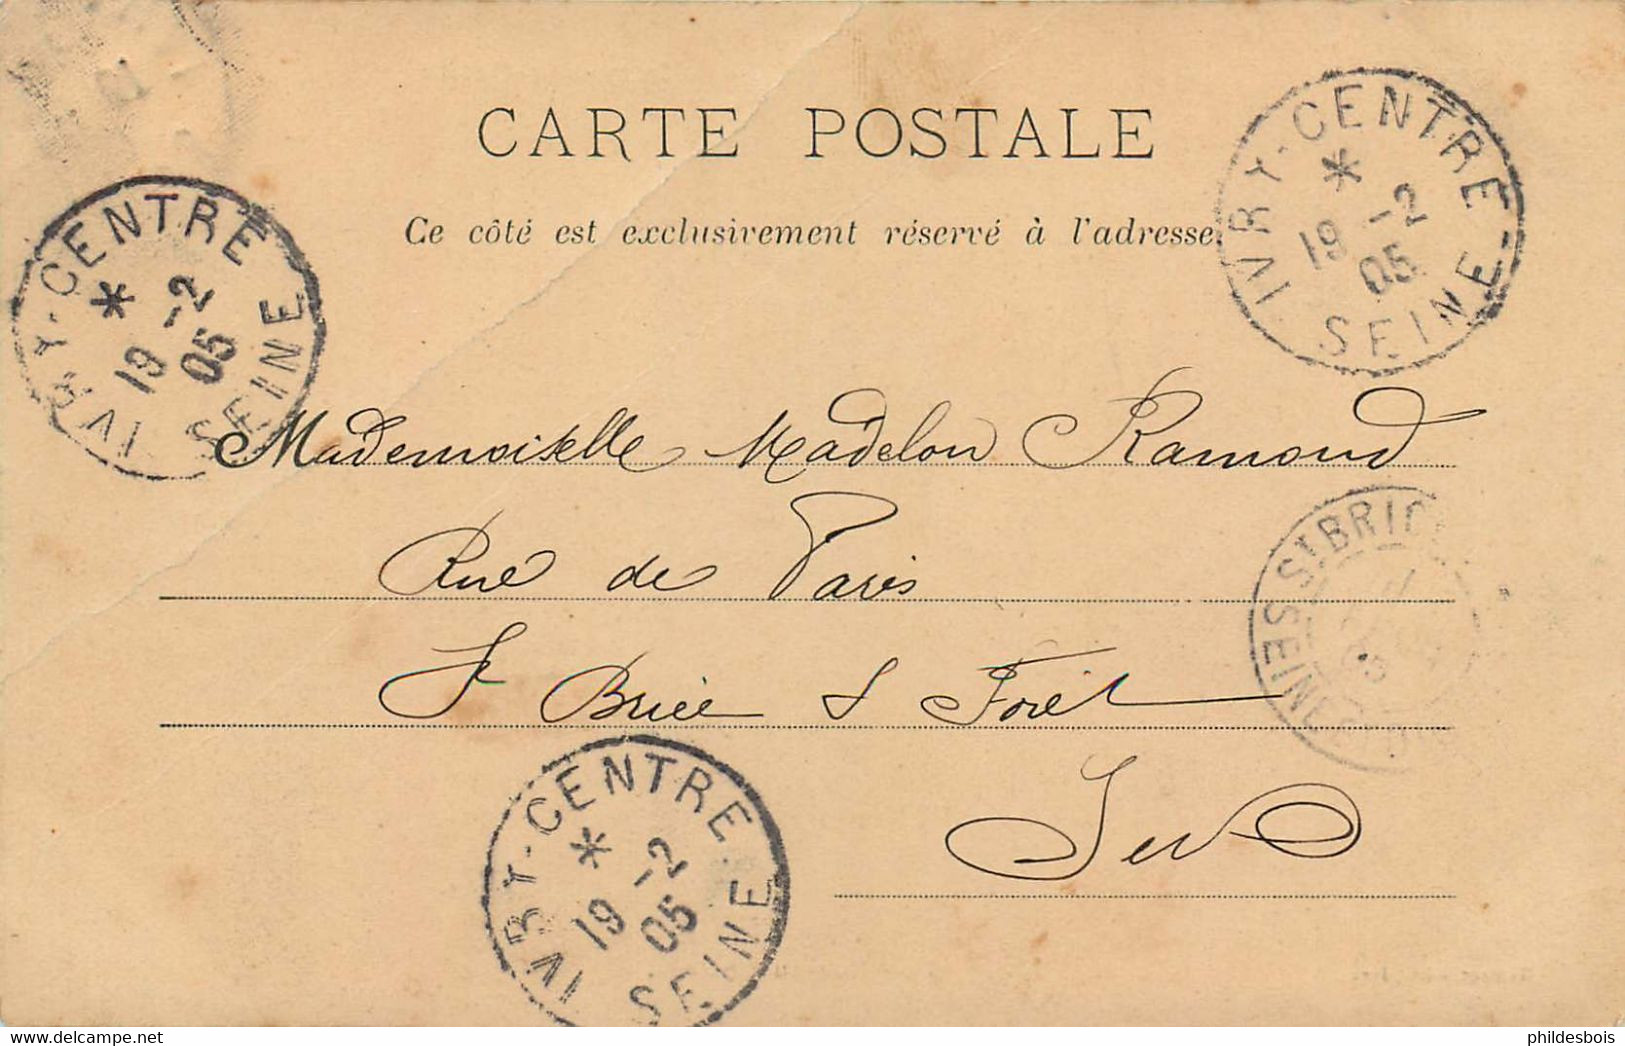 CARTE POSTALE
Ce côté est exclusivement réservé à l'adresse
IVRY-CENTRE
* 19 -2 05
SEINE
IVRY-CENTRE
* 19 -2 05
SEINE
Mademoiselle Madelon Ramond
Rue de Paris
St BRIC
SEINE
St Brice s Forêt
IVRY-CENTRE
* 19 -2 05
SEINE
phildesbois